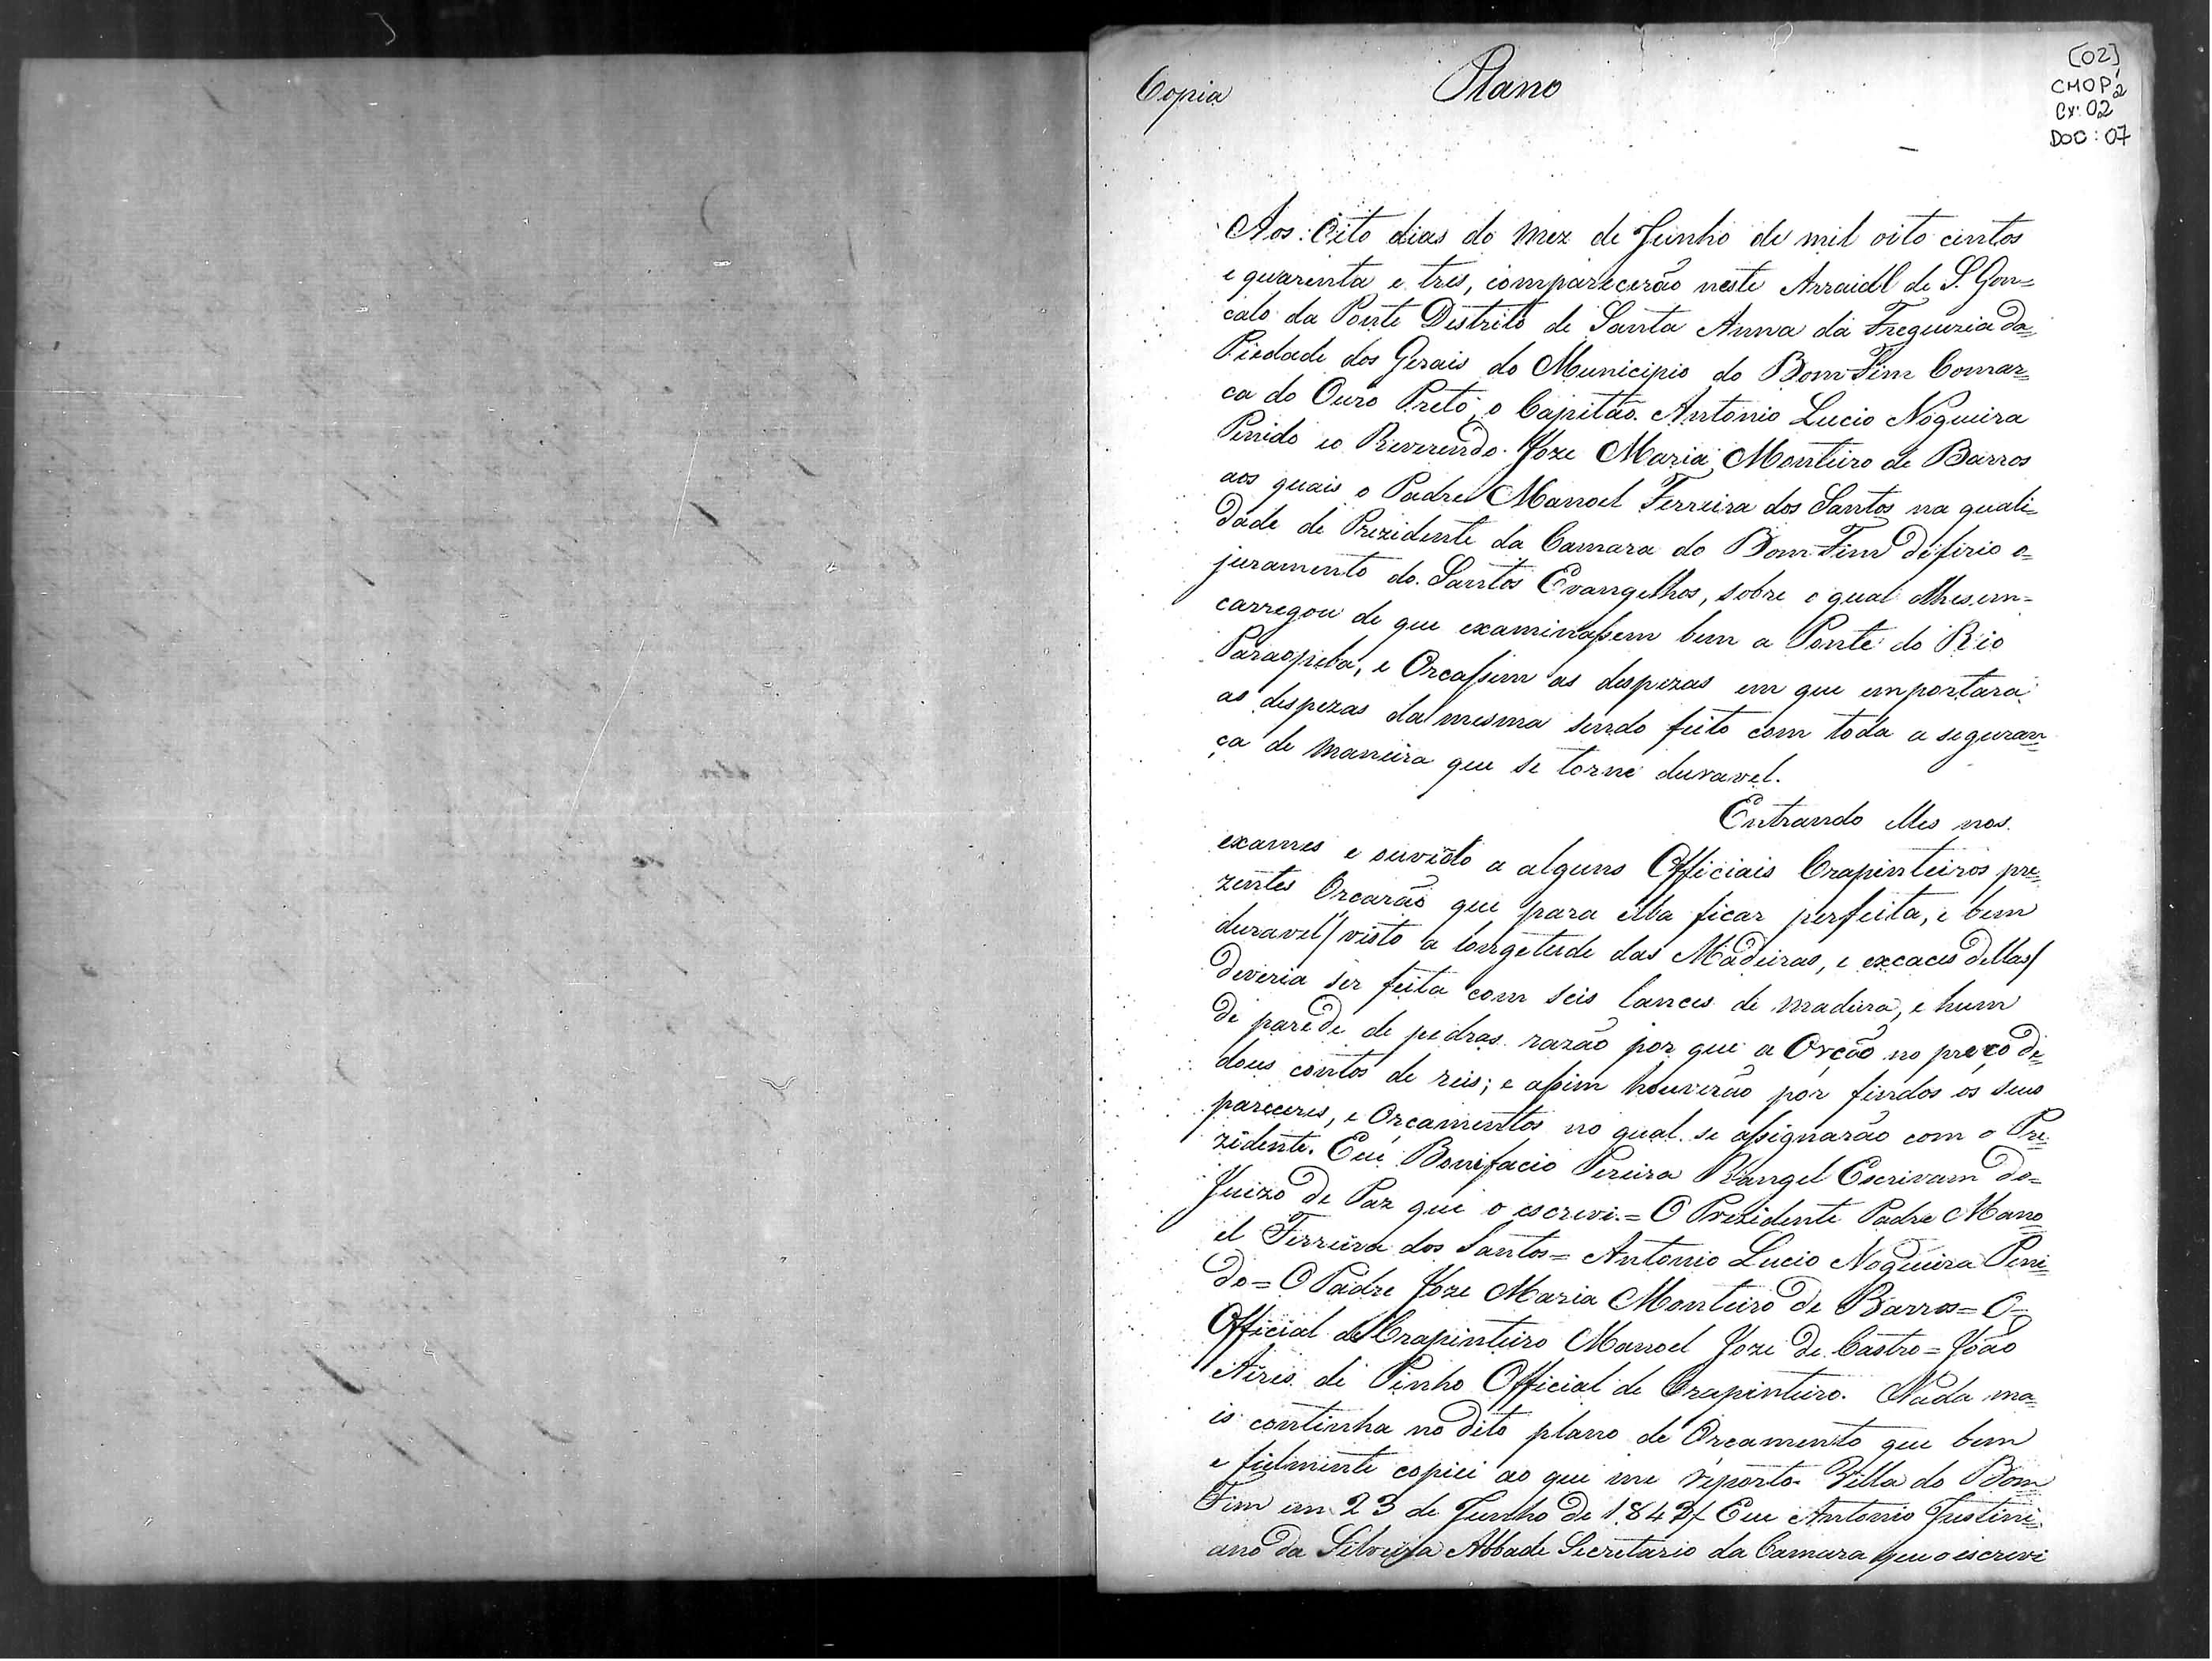 Copia
Plano
[02]
CMOP 2
Cx: 02
DOC: 07
Aos Oito dias do mez de Junho de mil oito centos
e quarenta e tres, comparecerão neste Arraial de S. Gon=
calo da Ponte Distrito de Santa Anna da Freguezia da=
Piedade dos Gerais do Municipio do Bom Fim Comar=
ca do Ouro Preto, o Capitão Antonio Lucio Nogueira
Penido eo Reverendo Joze Maria Monteiro de Barros
aos quais o Padre Manoel Ferreira dos Santos na quali=
dade de Prezidente da Camara do Bom Fim difirio o=
juramento do. Santos Evangelhos, sobre o qual lhes em=
carregou de que examinassem bem a Ponte do Rio
Paraopeba, e Orcassem as despezas em que emportara
as despezas da mesma sendo feito com toda a seguran=
ça de maneira que se torne duravel.
Entrando elles nos
exames e ouvido a alguns Officiais Crapinteiros pre=
zentes Orcarão que para ella ficar perfeita, e bem
duravel / visto a longetude das Madeiras, e excaces dellas /
deveria ser feita com seis lances de madeira, e hum
de parede de pedras razão por que a Orção no preço de=
dous contos de reis; e assim houverão por findos os seus
pareceres, e Orcamentos no qual se assignarão com o Pre=
zidente. Eu Bonifacio Pereira Rangel Escrivam do=
Juizo de Paz que o escrevi. = O Prezidente Padre Mano=
el Ferreira dos Santos = Antonio Lucio Nogueira Peni=
do = O Padre Joze Maria Monteiro de Barros = O=
Official de Crapinteiro Manoel Joze de Castro = João
Aires de Pinho Official de Crapinteiro. Nada ma=
is continha no dito plano de Orcamento que bem
e fielmente copiei ao que me reporto. Villa do Bom
Fim em 23 de Junho de 1843 Eu Antonio Justini=
ano da Silveira Abbade Secretario da Camara que o escrevi